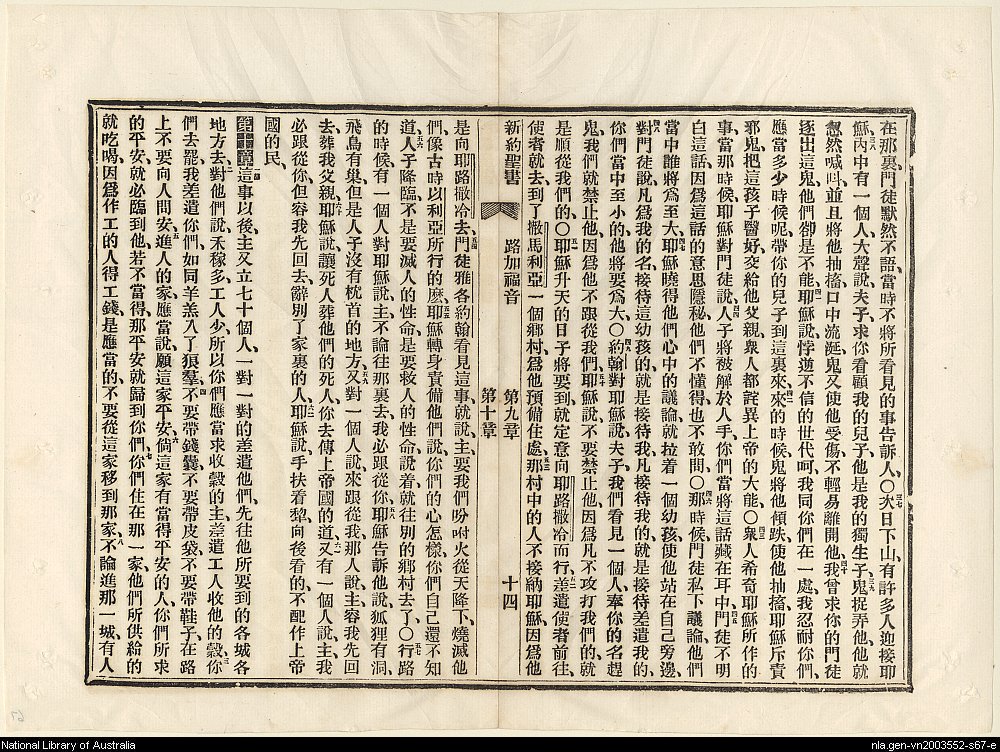 在那裏、門徒默然不語、當時不將所看見的事告訴人、〇次日下山、有許多人迎接耶
穌、內中有一個人、大聲說、夫子、求你看顧我的兒子、他是我的獨生子、鬼捉弄他、他就
忽然喊叫、並且將他抽搐、口中流涎、鬼又使他受傷、不輕易離開他、我曾求你的門徒
逐出這鬼、他們卻是不能、耶穌說、悖逆不信的世代呵、我同你們在一處、我忍耐你們、
應當多少時候呢、帶你的兒子到這裏來、來的時候、鬼將他傾跌、使他抽搐、耶穌斥責
邪鬼、把這孩子醫好、交給他父親、衆人都詫異上帝的大能、〇衆人希奇耶穌所作的
事、當那時候、耶穌對門徒說、人子將被解於人手、你們當將這話藏在耳中、門徒不明
白這話、因爲這話的意思隱秘、他們不懂得、也不敢問、〇那時候、門徒私下議論、他們
當中誰將爲至大、耶穌曉得他們心中的議論、就拉着一個幼孩、使他站在自己旁邊、
對門徒說、凡爲我的名、接待這幼孩的、就是接待我、凡接待我的、就是接待差遣我的、
你們當中至小的、他將要爲大、〇約翰對耶穌說、夫子、我們看見一個人、奉你的名趕
鬼、我們就禁止他、因爲他不跟從我們、耶穌說、不要禁止他、因爲凡不攻打我們的、就
是順從我們的、〇耶穌升天的日子將要到、就定意向耶路撒冷而行、差遣使者前往、
使者就去到了撒馬利亞一個鄉村、爲他預備住處、那村中的人不接納耶穌、因爲他
新約聖書 路加福音 第九章 第十章 十四
是向耶路撒冷去、門徒雅各約翰看見這事、就說、主、要我們吩咐火從天降下、燒滅他
們、像古時以利亞所行的麽、耶穌轉身責備他們說、你們的心怎樣、你們自己還不知
道、人子降臨、不是要滅人的性命、是要救人的性命、說着就往別的鄉村去了、〇行路
的時候、有一個人對耶穌說、主、不論往那裏去、我必跟從你、耶穌告訴他說、狐狸有洞、
飛鳥有巢、但是人子沒有枕首的地方、又對一個人說、來跟從我、那人說、主、容我先回
去葬我父親、耶穌說、讓死人葬他們的死人、你去傳上帝國的道、又有一個人說、主、我
必跟從你、但容我先回去、辭別了家裏的人、耶穌說、手扶着犂、向後看的、不配作上帝
國的民、
這事以後、主又立七十個人、一對一對的差遣他們、先往他所要到的各城各
地方去、對他們說、禾稼多、工人少、所以你們應當求收穀的主、差遣工人收他的穀、你
們去罷、我差遣你們、如同羊羔入了狼羣、不要帶錢囊、不要帶皮袋、不要帶鞋子、在路
上不要向人問安、進人的家、應當說、願這家平安、倘這家有當得平安的人、你們所求
的平安、就必臨到他、若不當得、那平安就歸到你們、你們住在那一家、他們所供給的、
就吃喝、因爲作工的人得工錢、是應當的、不要從這家移到那家、不論進那一城、有人
National Library of Australia
nla.gen-vn2003552-s67-e